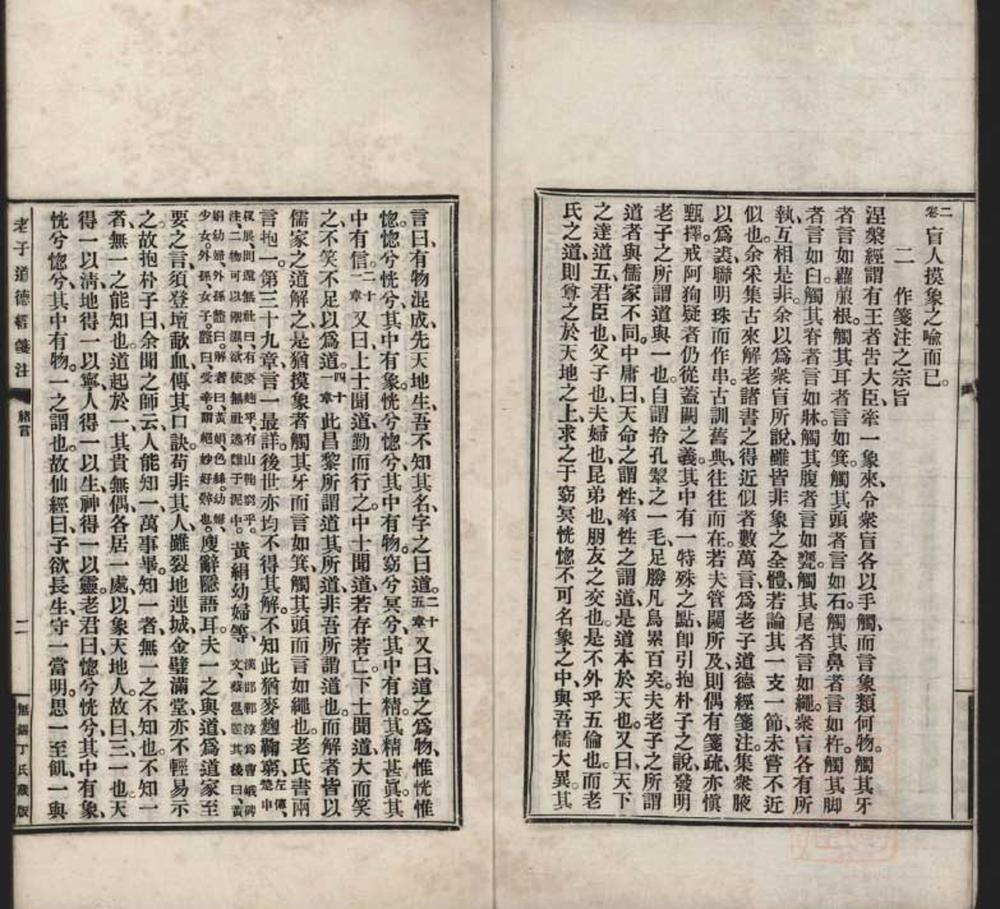 二卷盲人摸象之喩而已。
二　作箋注之宗旨
涅槃經謂有王者吿大臣、牽一象來、令衆盲各以手觸、而言象類何物。觸其牙
者言如蘿菔根、觸其耳者言如箕、觸其頭者言如石、觸其鼻者言如杵、觸其脚
者言如臼、觸其脊者言如牀、觸其腹者言如甕、觸其尾者言如繩。衆盲各有所
執、互相是非。余以爲衆盲所說、雖皆非象之全體、若論其一支一節、未嘗不近
似也。余采集古來解老諸書之得近似者數萬言、爲老子道德經箋注。集衆腋
以爲裘、聯明珠而作串、古訓舊典、往往而在。若夫管闚所及、則偶有箋疏、亦愼
甄擇、戒阿狥、疑者仍從蓋闕之義。其中有一特殊之點、卽引抱朴子之說、發明
老子之所謂道與一也。自謂拾孔翠之一毛、足勝凡鳥累百矣。夫老子之所謂
道者、與儒家不同。中庸曰、天命之謂性、率性之謂道、是道本於天也。又曰、天下
之達道五、君臣也、父子也、夫婦也、昆弟也、朋友之交也。是不外乎五倫也。而老
氏之道、則尊之於天地之上、求之于窈冥恍惚不可名象之中、與吾儒大異。其
言曰、有物混成、先天地生、吾不知其名、字之曰道。二十五章又曰、道之爲物、惟恍惟
惚。惚兮恍兮、其中有象。恍兮惚兮、其中有物。窈兮冥兮、其中有精。其精甚眞、其
中有信。二十一章又曰、上士聞道、勤而行之。中士聞道、若存若亡。下士聞道、大而笑
之、不笑不足以爲道。四十一章此昌黎所謂道其所道、非吾所謂道也。而解者皆以
儒家之道解之、是猶摸象者觸其牙而言如箕、觸其頭而言如繩也。老氏書兩
言抱一、第三十九章言一最詳。後世亦均不得其解。不知此猶麥麴鞠窮左傳、楚申
叔展問還無社曰、有麥麴乎、有山鞠窮乎。注、二物可以禦濕、欲使無社逃難于泥中。黃絹幼婦等漢邯鄲淳爲曹娥碑文、蔡邕題其後曰、黃
絹幼婦、外孫齏臼。解者曰、黃絹、色絲。幼婦、少女。外孫、女子。齏臼、受辛。謂絕妙好辭也。廋辭隱語耳。夫一之與道、爲道家至
要之言、須登壇歃血、傳其口訣、苟非其人、雖裂地連城、金璧滿堂、亦不輕易示
之。故抱朴子曰、余聞之師云、人能知一、萬事畢。知一者、無一之不知也。不知一
者、無一之能知也。道起於一、其貴無偶、各居一處、以象天地人。故曰三一也。天
得一以淸、地得一以寧、人得一以生、神得一以靈。老君曰、惚兮恍兮、其中有象、
恍兮惚兮、其中有物。一之謂也。故仙經曰、子欲長生、守一當明。思一至飢、一與
老子道德經箋注　緖言　二　無錫丁氏藏版